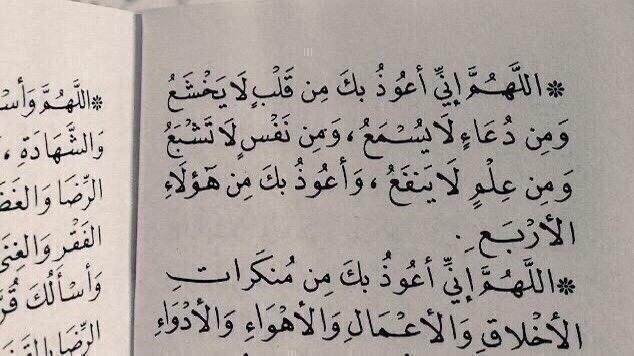 ❊ اللَّهُمَّ إِنِّي أَعُوذُ بِكَ مِن قَلْبٍ لَا يَخْشَعُ
وَمِن دُعَاءٍ لَا يُسْمَعُ ، وَمِن نَفْسٍ لَا تَشْبَعُ
وَمِن عِلْمٍ لَا يَنفَعُ ، وَأَعُوذُ بِكَ مِن هَؤُلَاءِ
الأَرْبَعِ .
❊ اللَّهُمَّ إِنِّي أَعُوذُ بِكَ مِن مُنكَرَاتِ
الأَخْلَاقِ وَالأَعْمَالِ وَالأَهْوَاءِ وَالأَدْوَاءِ
❊ اللَّهُمَّ
وَالشَّهَادَةِ ،
الرِّضَا
الفَقْرِ وَالغِنَى
وَأَسْأَلُكَ
الرِّضَا